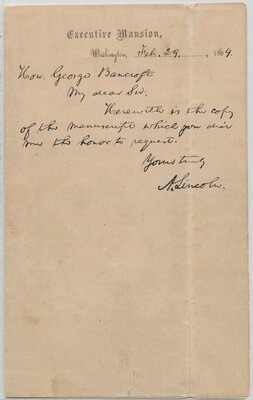 Executive Mansion,
Washington, Feb. 29, 1864.
Hon. George Bancroft
My dear Sir.
Herewith is the copy
of the manuscript which you did
me the honor to request.
Yours truly
A. Lincoln.